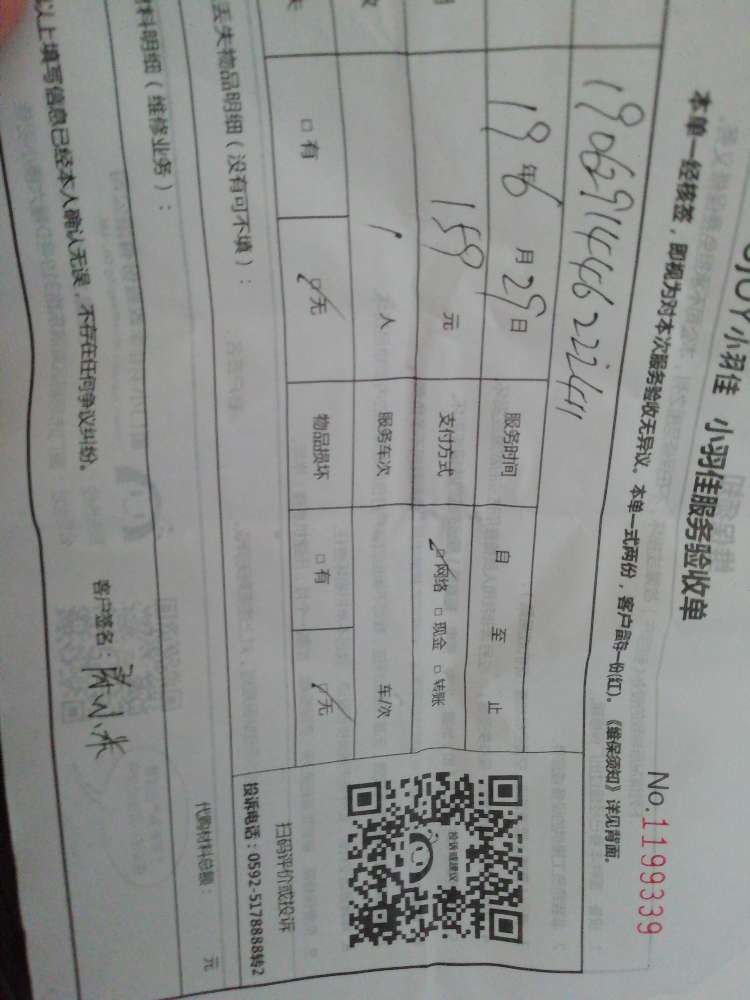 小羽佳 小羽佳服务验收单
No.1199339
本单一经核签，即视为对本次服务验收无异议。本单一式两份，客户留存一份(红)。《维保须知》详见背面。
1906291446222411
19年6月29日 服务时间 自 至 止
159元 支付方式 ☑网络 □现金 □转账
1人 服务车次 车/次
□有 ☑无 物品损坏 □有 ☑无
投诉或建议
扫码评价或投诉
投诉电话：0592-5178888转2
丢失物品明细（没有可不填）：
料明细（维修业务）：
代购材料总额： 元
以上填写信息已经本人确认无误，不存在任何争议纠纷。
客户签名：